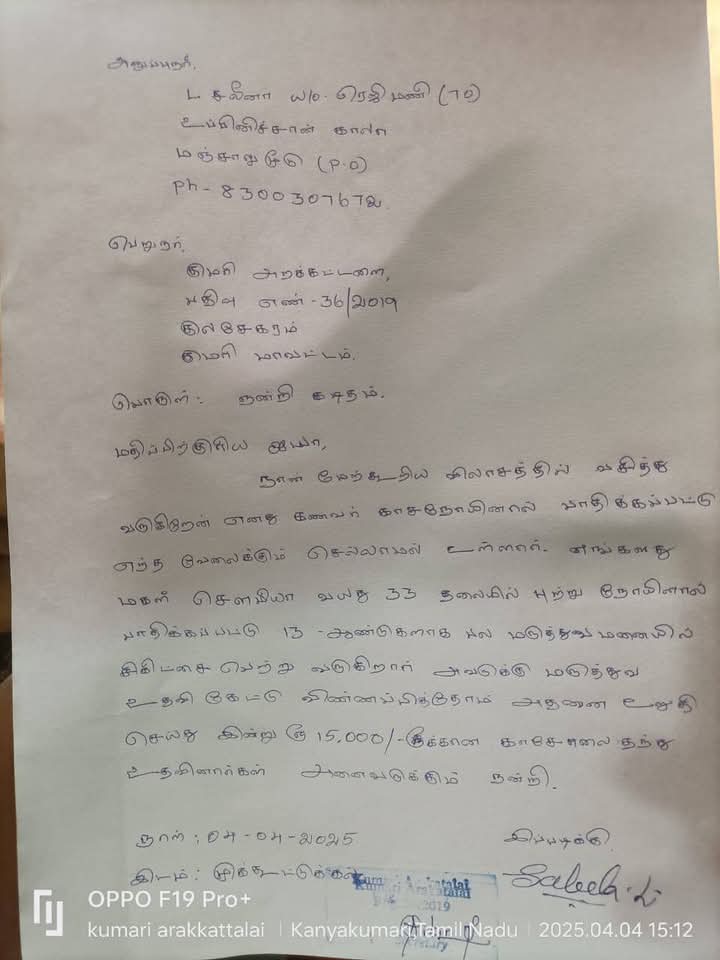 அனுப்புநர்,
L சலீனா W/o. ரெஜி மணி (70)
காலை
மஞ்சாலுமூடு (P.O)
Ph - 830030767
பெறுநர்,
குமரி அறக்கட்டளை,
பதிவு எண் - 36/2019
குலசேகரம்
குமரி மாவட்டம்.
பொருள் : நன்றி கடிதம்.
மதிப்பிற்குரிய ஐயா,
நான் மேற்கூறிய விலாசத்தில் வசித்து
வருகிறேன் எனது கணவர் காசநோயினால் பாதிக்கப்பட்டு
எந்த வேலைக்கும் செல்லாமல் உள்ளார். எங்களது
மகள் சௌமியா வயது 33 தலையில் புற்று நோயினால்
பாதிக்கப்பட்டு 13 - ஆண்டுகளாக பல மருத்துவமனையில்
சிகிட்சை பெற்று வருகிறார் அவருக்கு மருத்துவ
உதவி கேட்டு விண்ணப்பித்தோம் அதனை உறுதி
செய்து இன்று ரூ 15,000/-க்கான காசோலை தந்து
உதவினார்கள் அனைவருக்கும் நன்றி.
நாள் : 04-04-2025
இப்படிக்கு
இடம் :
Kumari Arakatalai
2019
Secretary
OPPO F19 Pro+
kumari arakkattalai | Kanyakumari,Tamil Nadu | 2025.04.04 15:12